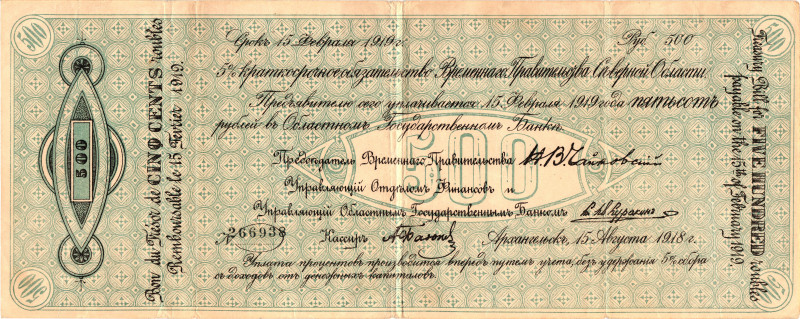 500
500
Срокъ 15 Февраля 1919 г.
Руб. 500
5% краткосрочное обязательство Временнаго Правительства Сѣверной Области.
Предъявителю сего уплачивается 15 Февраля 1919 года пятьсотъ
рублей въ Областномъ Государственномъ Банкѣ.
500
Предсѣдатель Временнаго Правительства Н. В. Чайковскій
Управляющій Отдѣломъ Финансовъ и
Управляющій Областнымъ Государственнымъ Банкомъ
№ 266938
Кассиръ
Архангельскъ, 15 Августа 1918 г.
Уплата процентовъ производится впередъ путемъ учета, безъ удержанія 5% сбора
съ доходовъ отъ денежныхъ капиталовъ.
Bon du Trésor de CINQ CENTS roubles
Remboursable le 15 Février 1919.
500
Treasury Bill for FIVE HUNDRED roubles
payable on the 15th of February 1919.
500
500